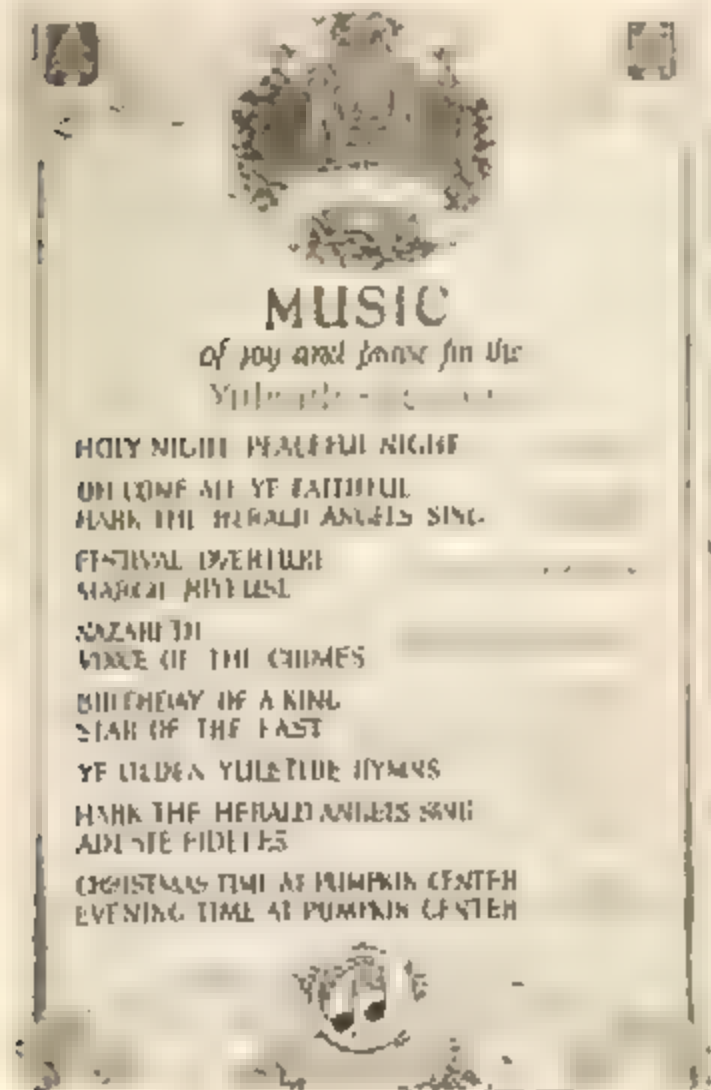 MUSIC
of joy and praise for the
HOLY NIGHT PEACEFUL NIGHT
OH COME ALL YE FAITHFUL
HARK THE HERALD ANGELS SING
FESTIVAL OVERTURE
MARCH
NAZARETH
VOICE OF THE CHIMES
BIRTHDAY OF A KING
STAR OF THE EAST
YE OLDEN YULETIDE HYMNS
HARK THE HERALD ANGELS SING
ADESTE FIDELES
CHRISTMAS TIME AT PUMPKIN CENTER
EVENING TIME AT PUMPKIN CENTER